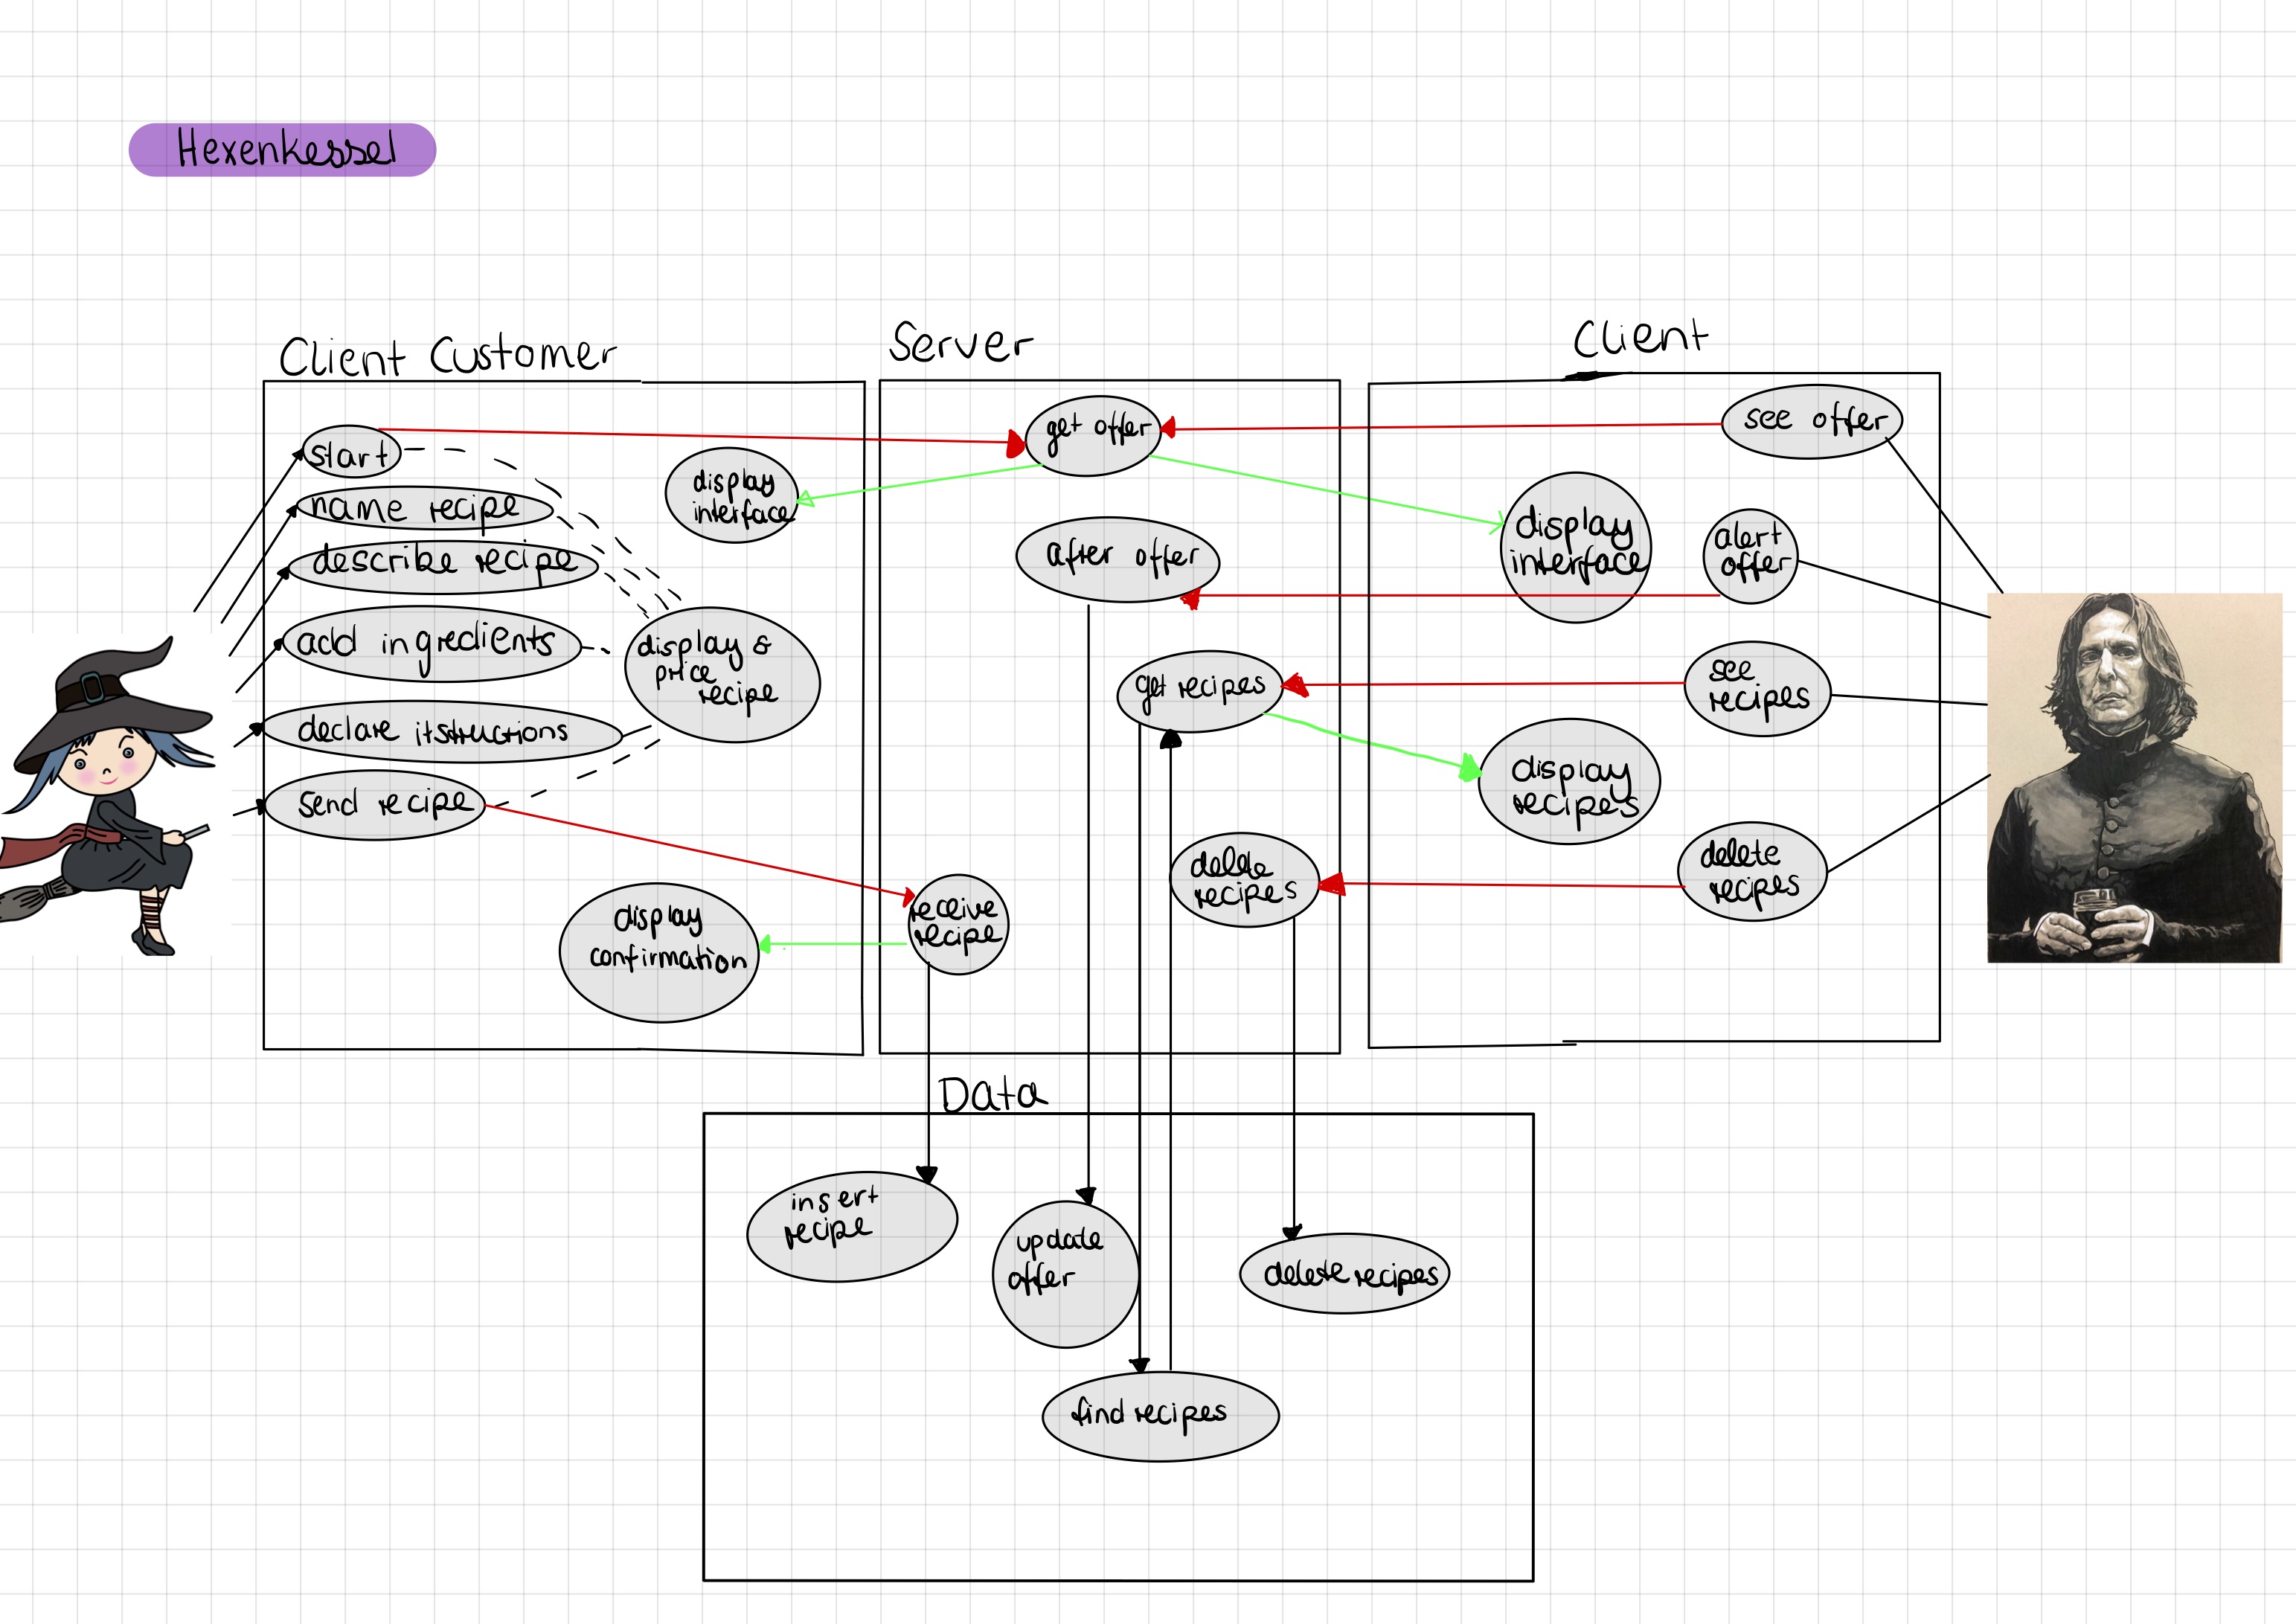 Hexenkessel
Client Customer
start
name recipe
describe recipe
add ingredients
declare itstructions
send recipe
display
interface
display &
price
recipe
display
confirmation
Server
get offer
after offer
get recipes
delete
recipes
receive
recipe
Client
see offer
display
interface
alert
offer
see
recipes
display
recipes
delete
recipes
Data
insert
recipe
update
offer
delete recipes
find recipes